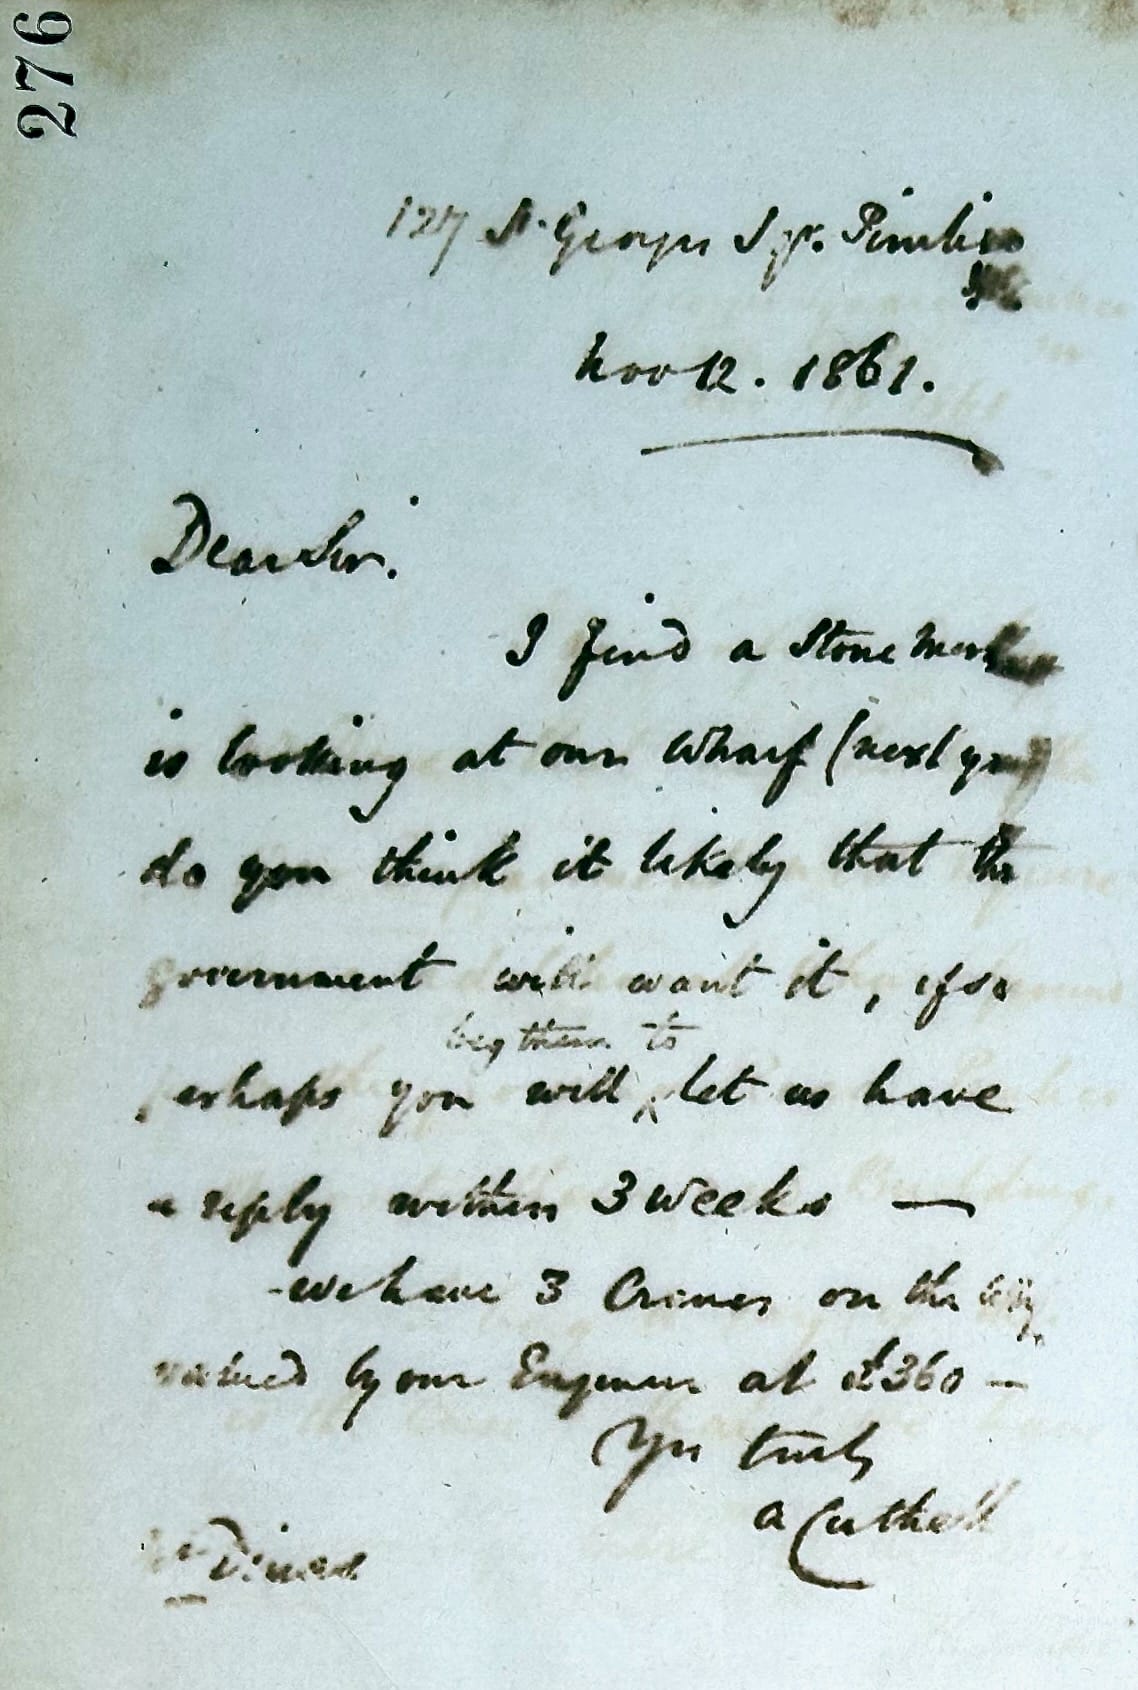 276
127 St. Georges Sqr. Pimlico
Nov 12. 1861.
Dear Sir.
I find a Stone Merchant
is looking at our Wharf (next you)
do you think it likely that the
government will want it, if so
beg them to
perhaps you will ^ let us have
a reply within 3 weeks —
- we have 3 Cranes on the
valued by our Engineer at £360 —
Yrs truly
A Cuthell
Mr Dines